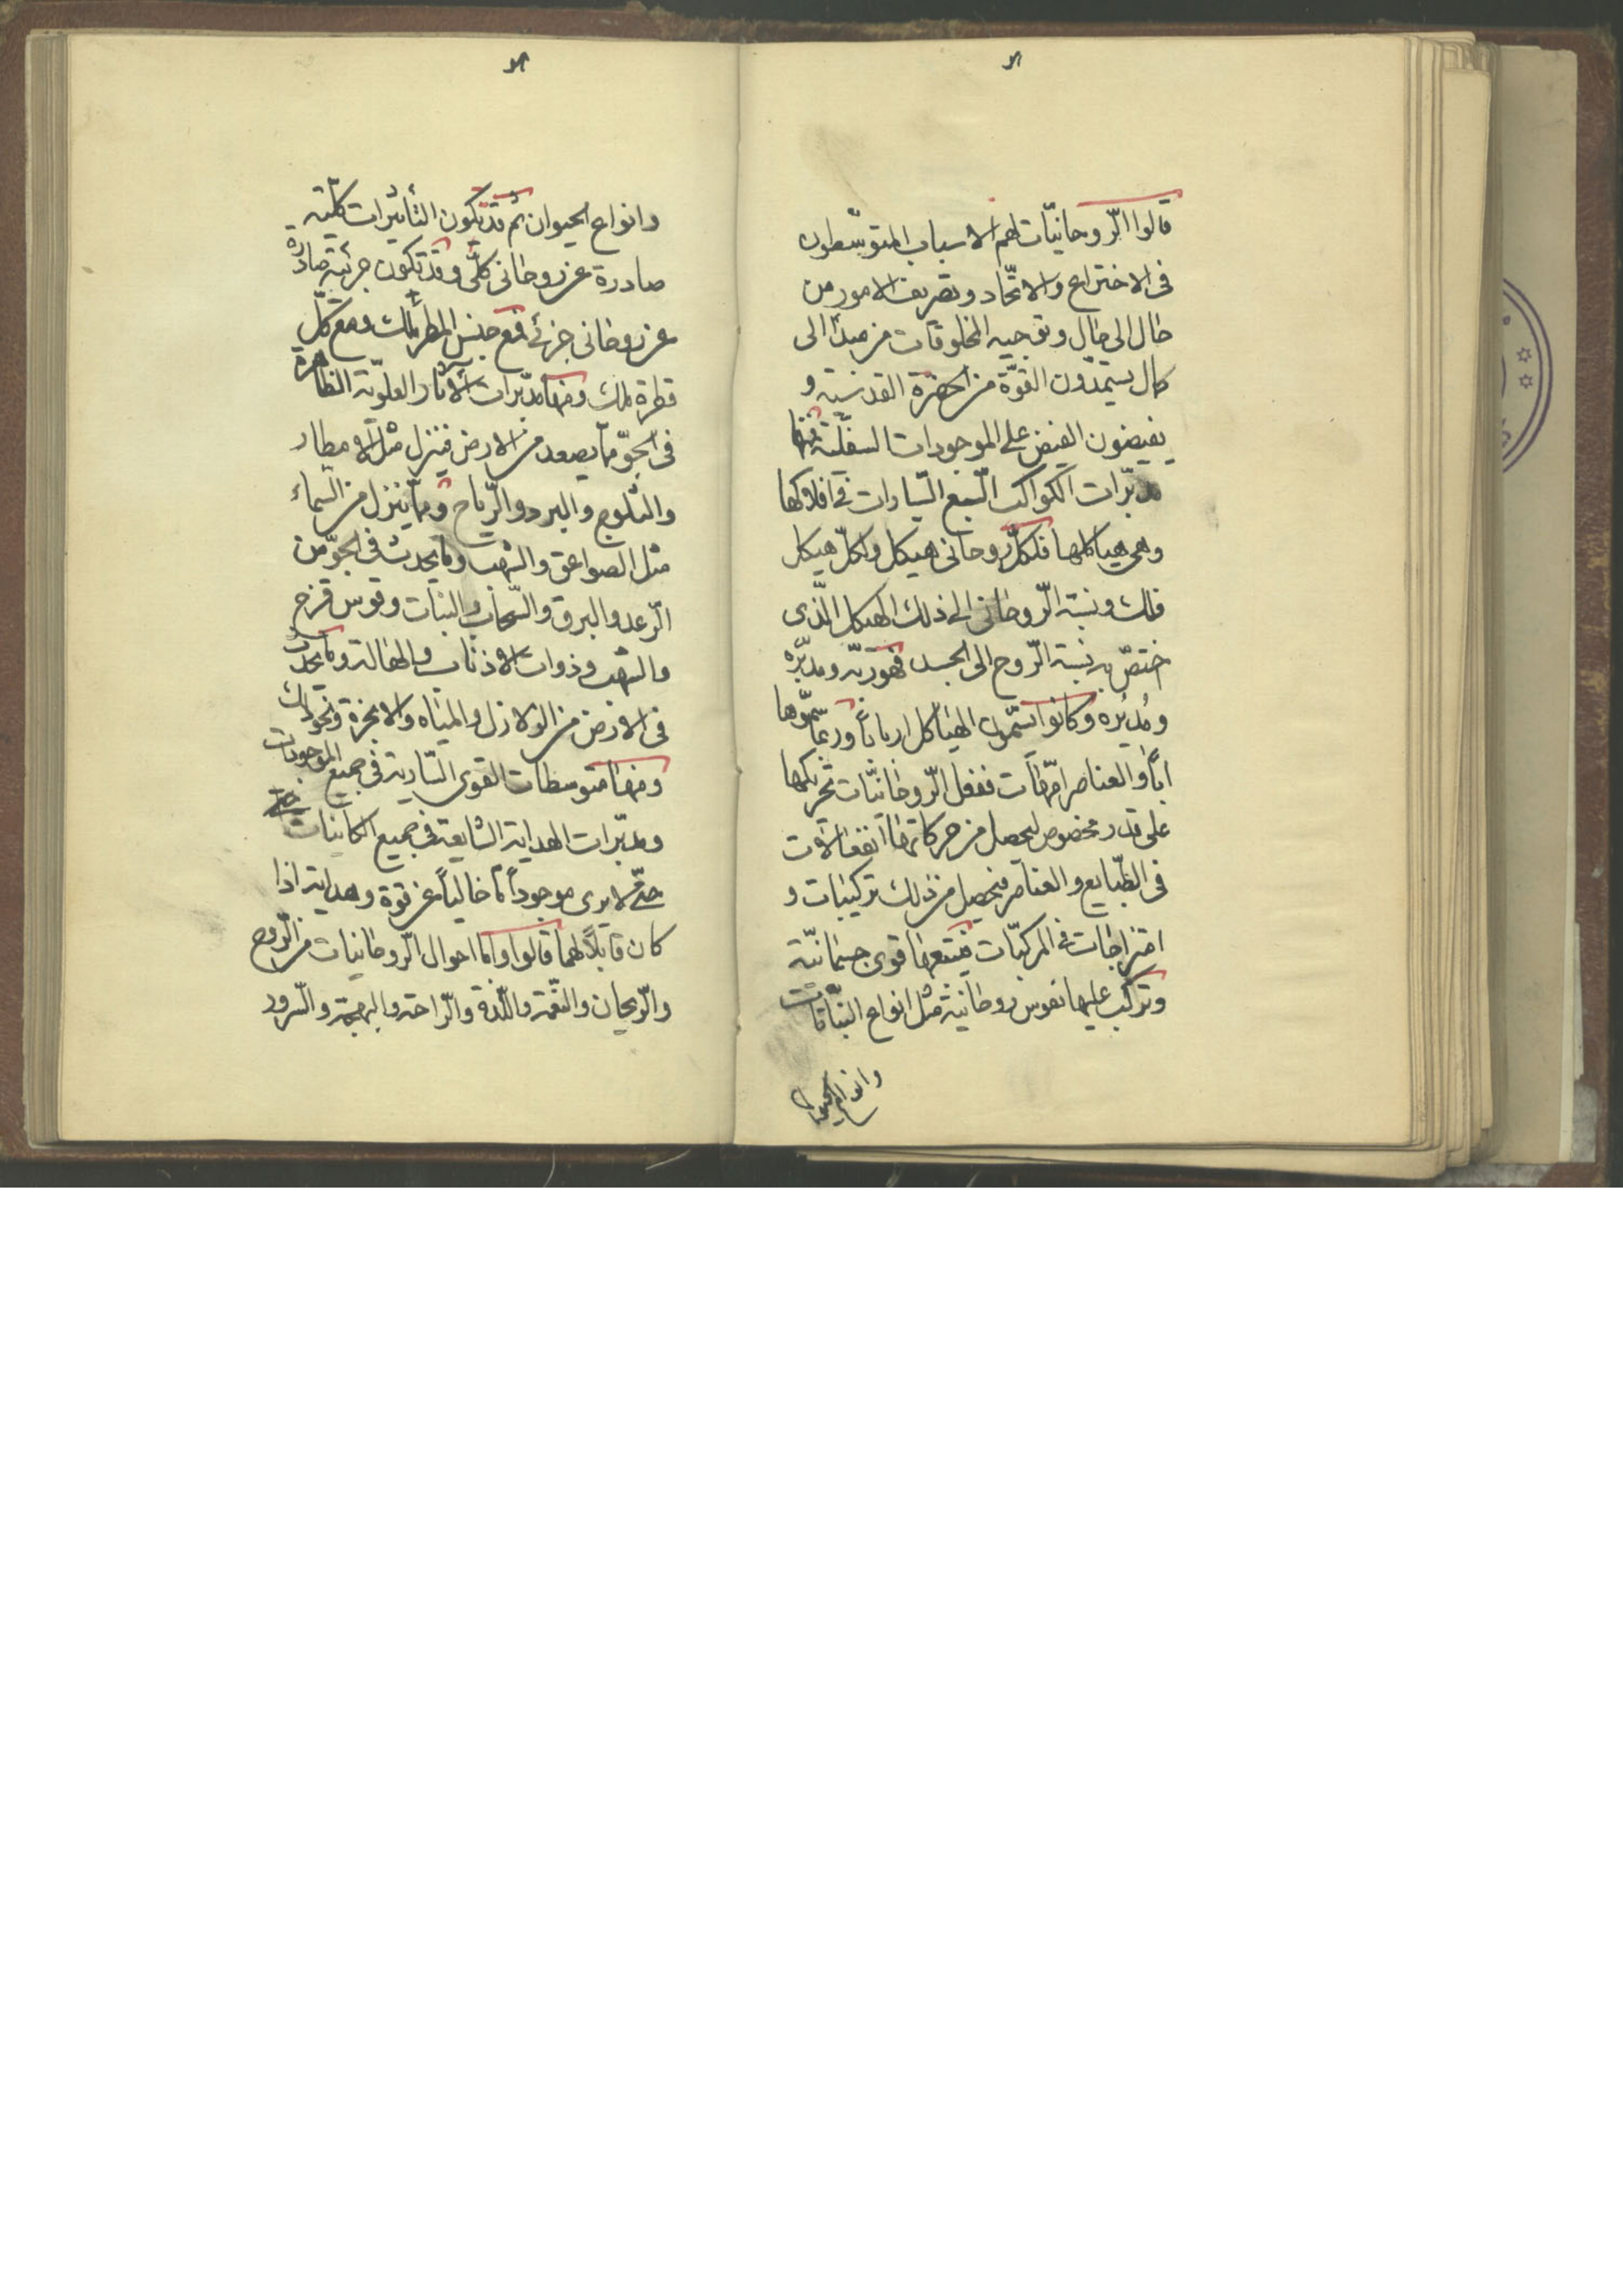 قالوا الرّوحانيّات هم الاسباب المتوسّطون
فى الاختراع والاتّحاد وتصريف الامور من
حال الى حال وتوجيه المخلوقات من مبدأ الى
كمال يستمدّون القوّة من الحضرة القدسيّة و
يفيضون الفيض على الموجودات السفليّة فمنها
مدبّرات الكواكب السّبع السّيارات فى افلاكها
وهى هياكلها فلكلّ روحانى هيكل ولكلّ هيكل
فلك ونسبة الرّوحانى الى ذلك الهيكل الّذى
اختصّ به نسبة الرّوح الى الجسد فهو ربّه ومدبّره
ومُديُره وكانوا يسمّون الهياكل ارباباً وربّما سمّوها
اباً والعناصر امّهات ففعل الرّوحانيّات تحريكها
على قدر مخصوص ليحصل من حركاتها انفعالات
فى الطّبايع والعناصر فيحصل من ذلك تركيبات و
امتزاجات فى المركبّات فيتبعها قوى جسمانيّة
وتركّب عليها نفوس روحانيّة مثل انواع النّباتات
وانواع الحيوان
وانواع الحيوان ثم قد تكون التأثيرات كلّيّة
صادرة عن روحانى كلّى وقد تكون جزئية صادرة
عن روحانى جزئى فمع جنس المطر ملك ومع كلّ
قطرة ملك ومنها مدبّرات الآثار العلويّة الظاهرة
فى الجوّ ممّا يصعد من الارض فينزل مثل الامطار
والثلوج والبرد والرّياح وممّا ينزل من السّماء
مثل الصواعق والشّهب وما يحدث فى الجوّ من
الرّعد والبرق والسّحاب والبنات وقوس قزح
والشهب وذوات الاذناب والهالة وما يحدث
فى الارض من الزلازل والمياه والابخرة ونحو ذلك
ومنها متوسطات القوى السّارية فى جميع الموجودات
ومدبّرات الهداية الشايعة فى جميع الكاينات
حتّى لا يرى موجوداً ما خالياً عن قوة وهداية اذا
كان قابلاً لهما قالوا وامّا احوال الرّوحانيات من الرّوح
والرّيحان والنّعمة واللّذة والرّاحة والبهجة والسّرور